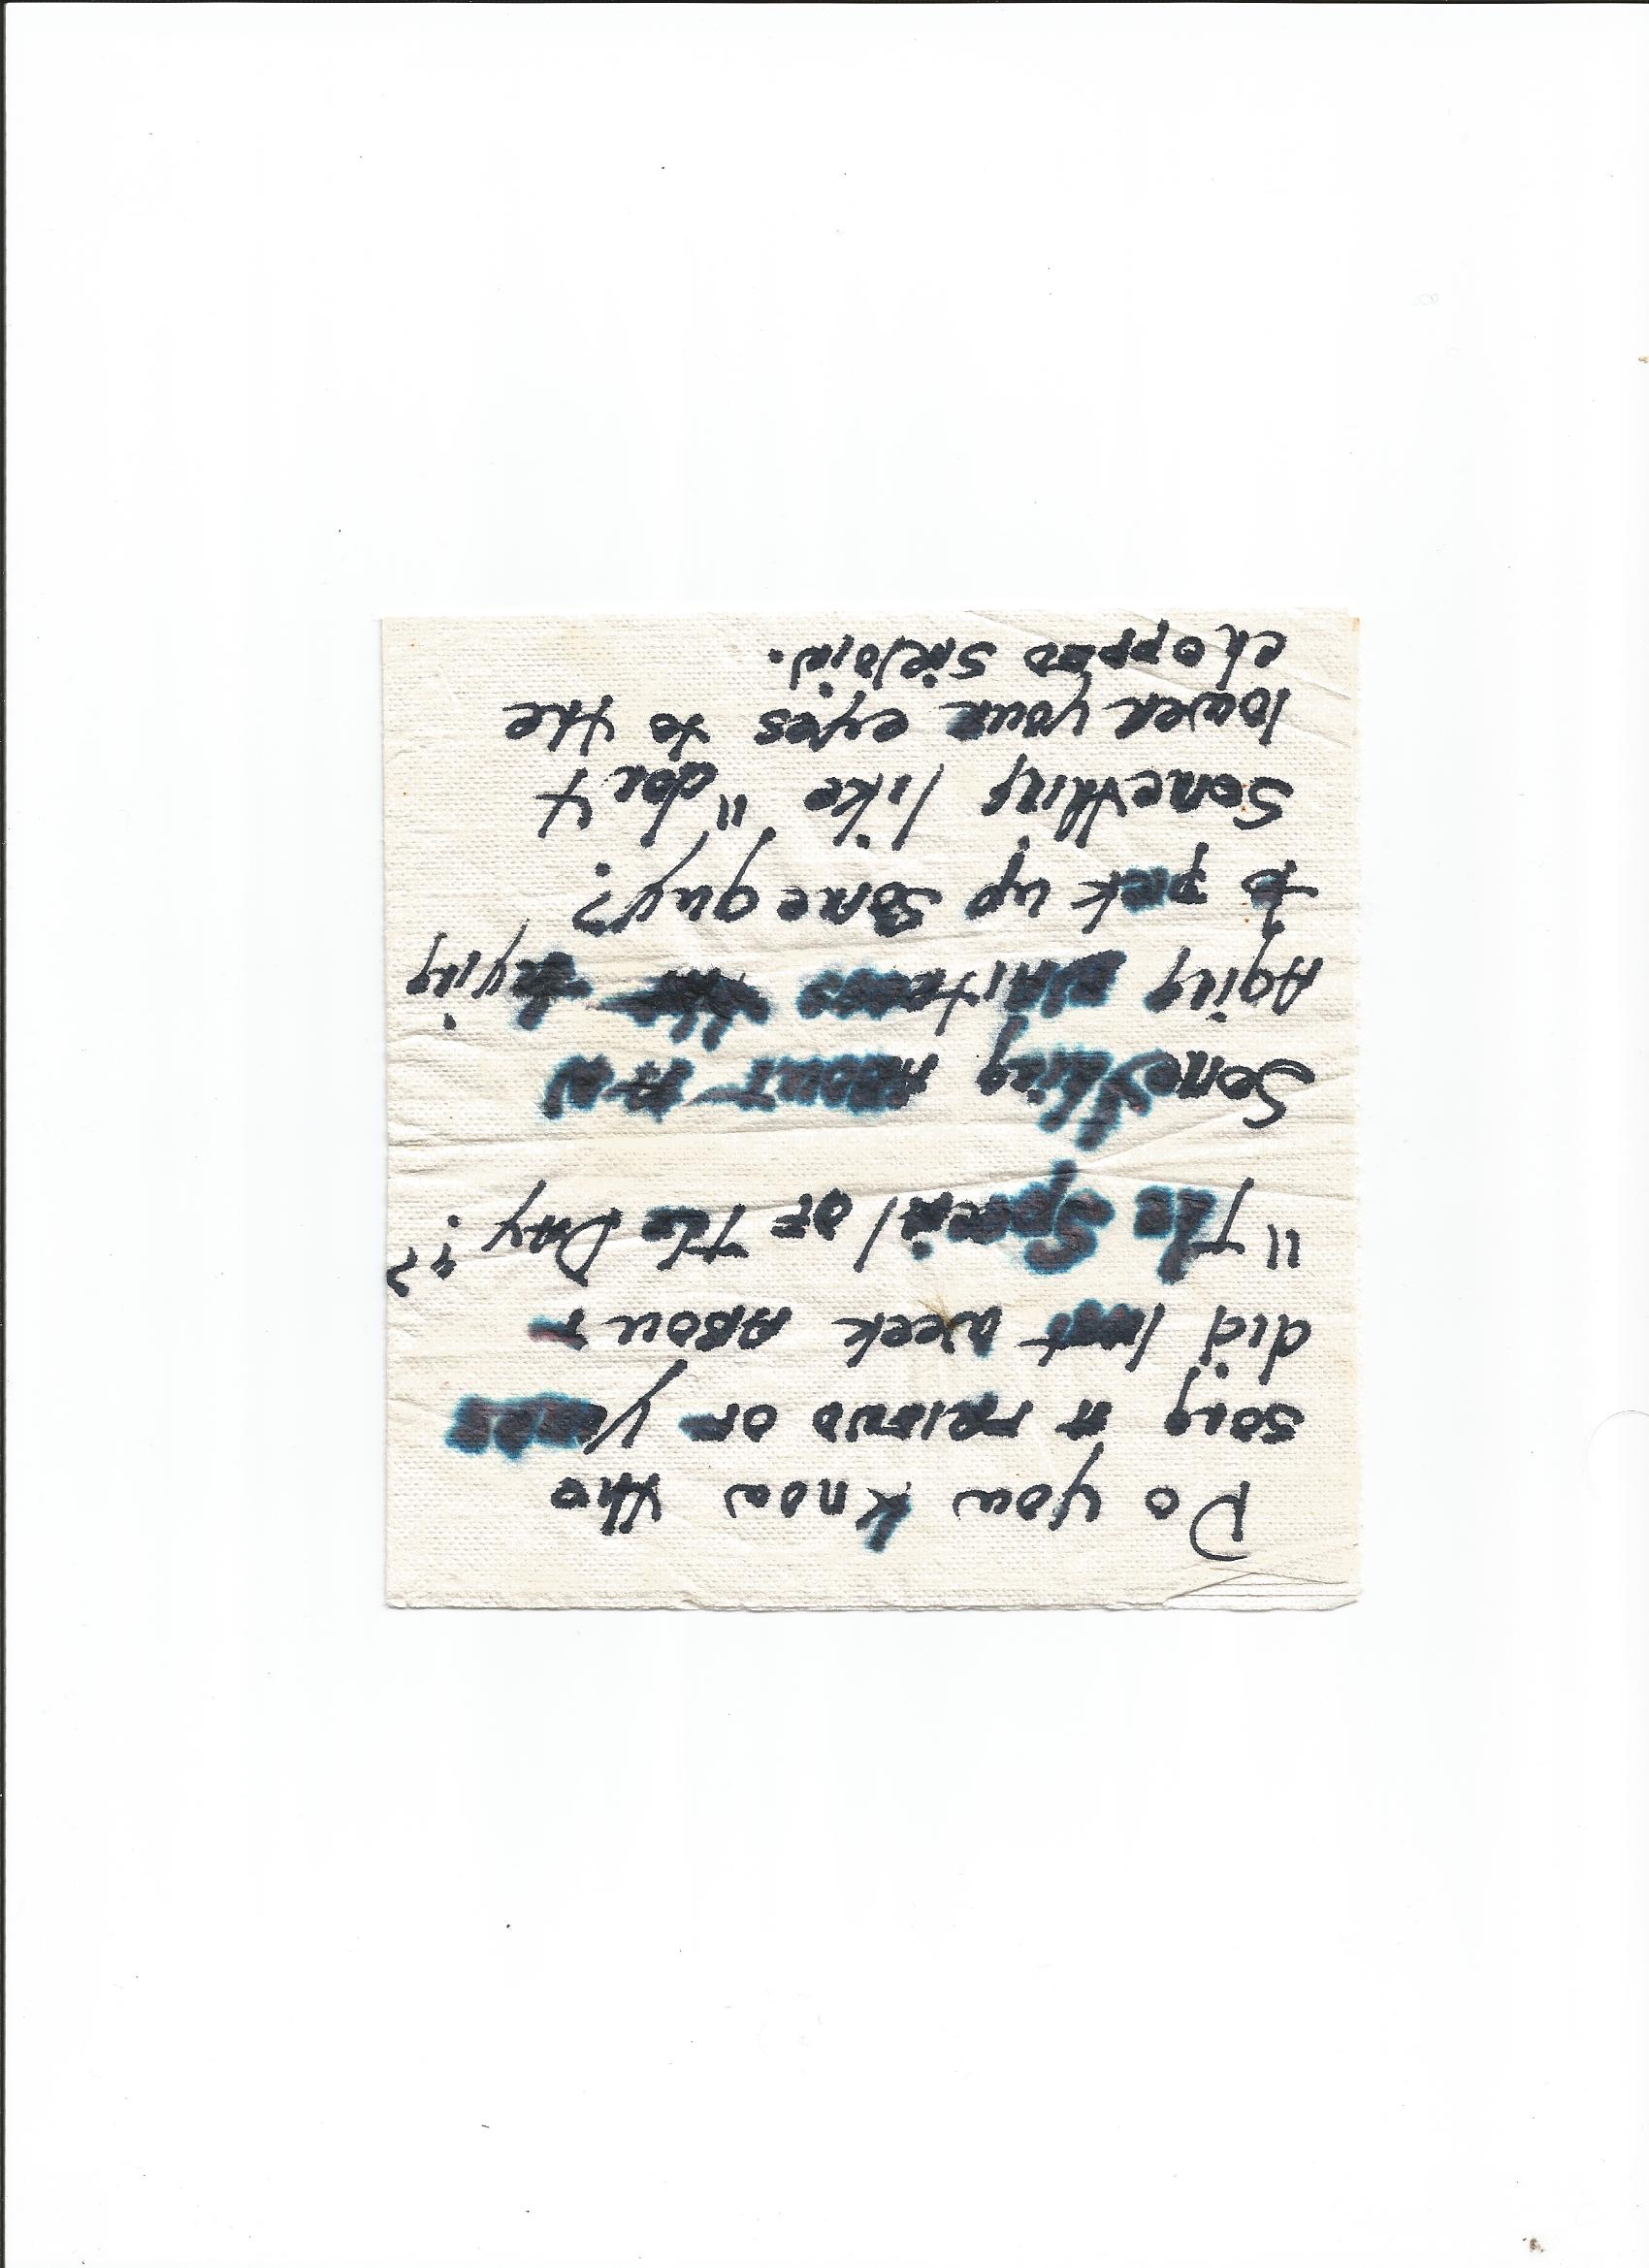 Do you know the
song A FRIEND OF yours
did last week ABOUT
"The Special OF The DAY"?
Something ABOUT AN
Aging WAITress trying
to pick up some guy?
Something like "don't
lower your eyes to the
chopped sirloin.